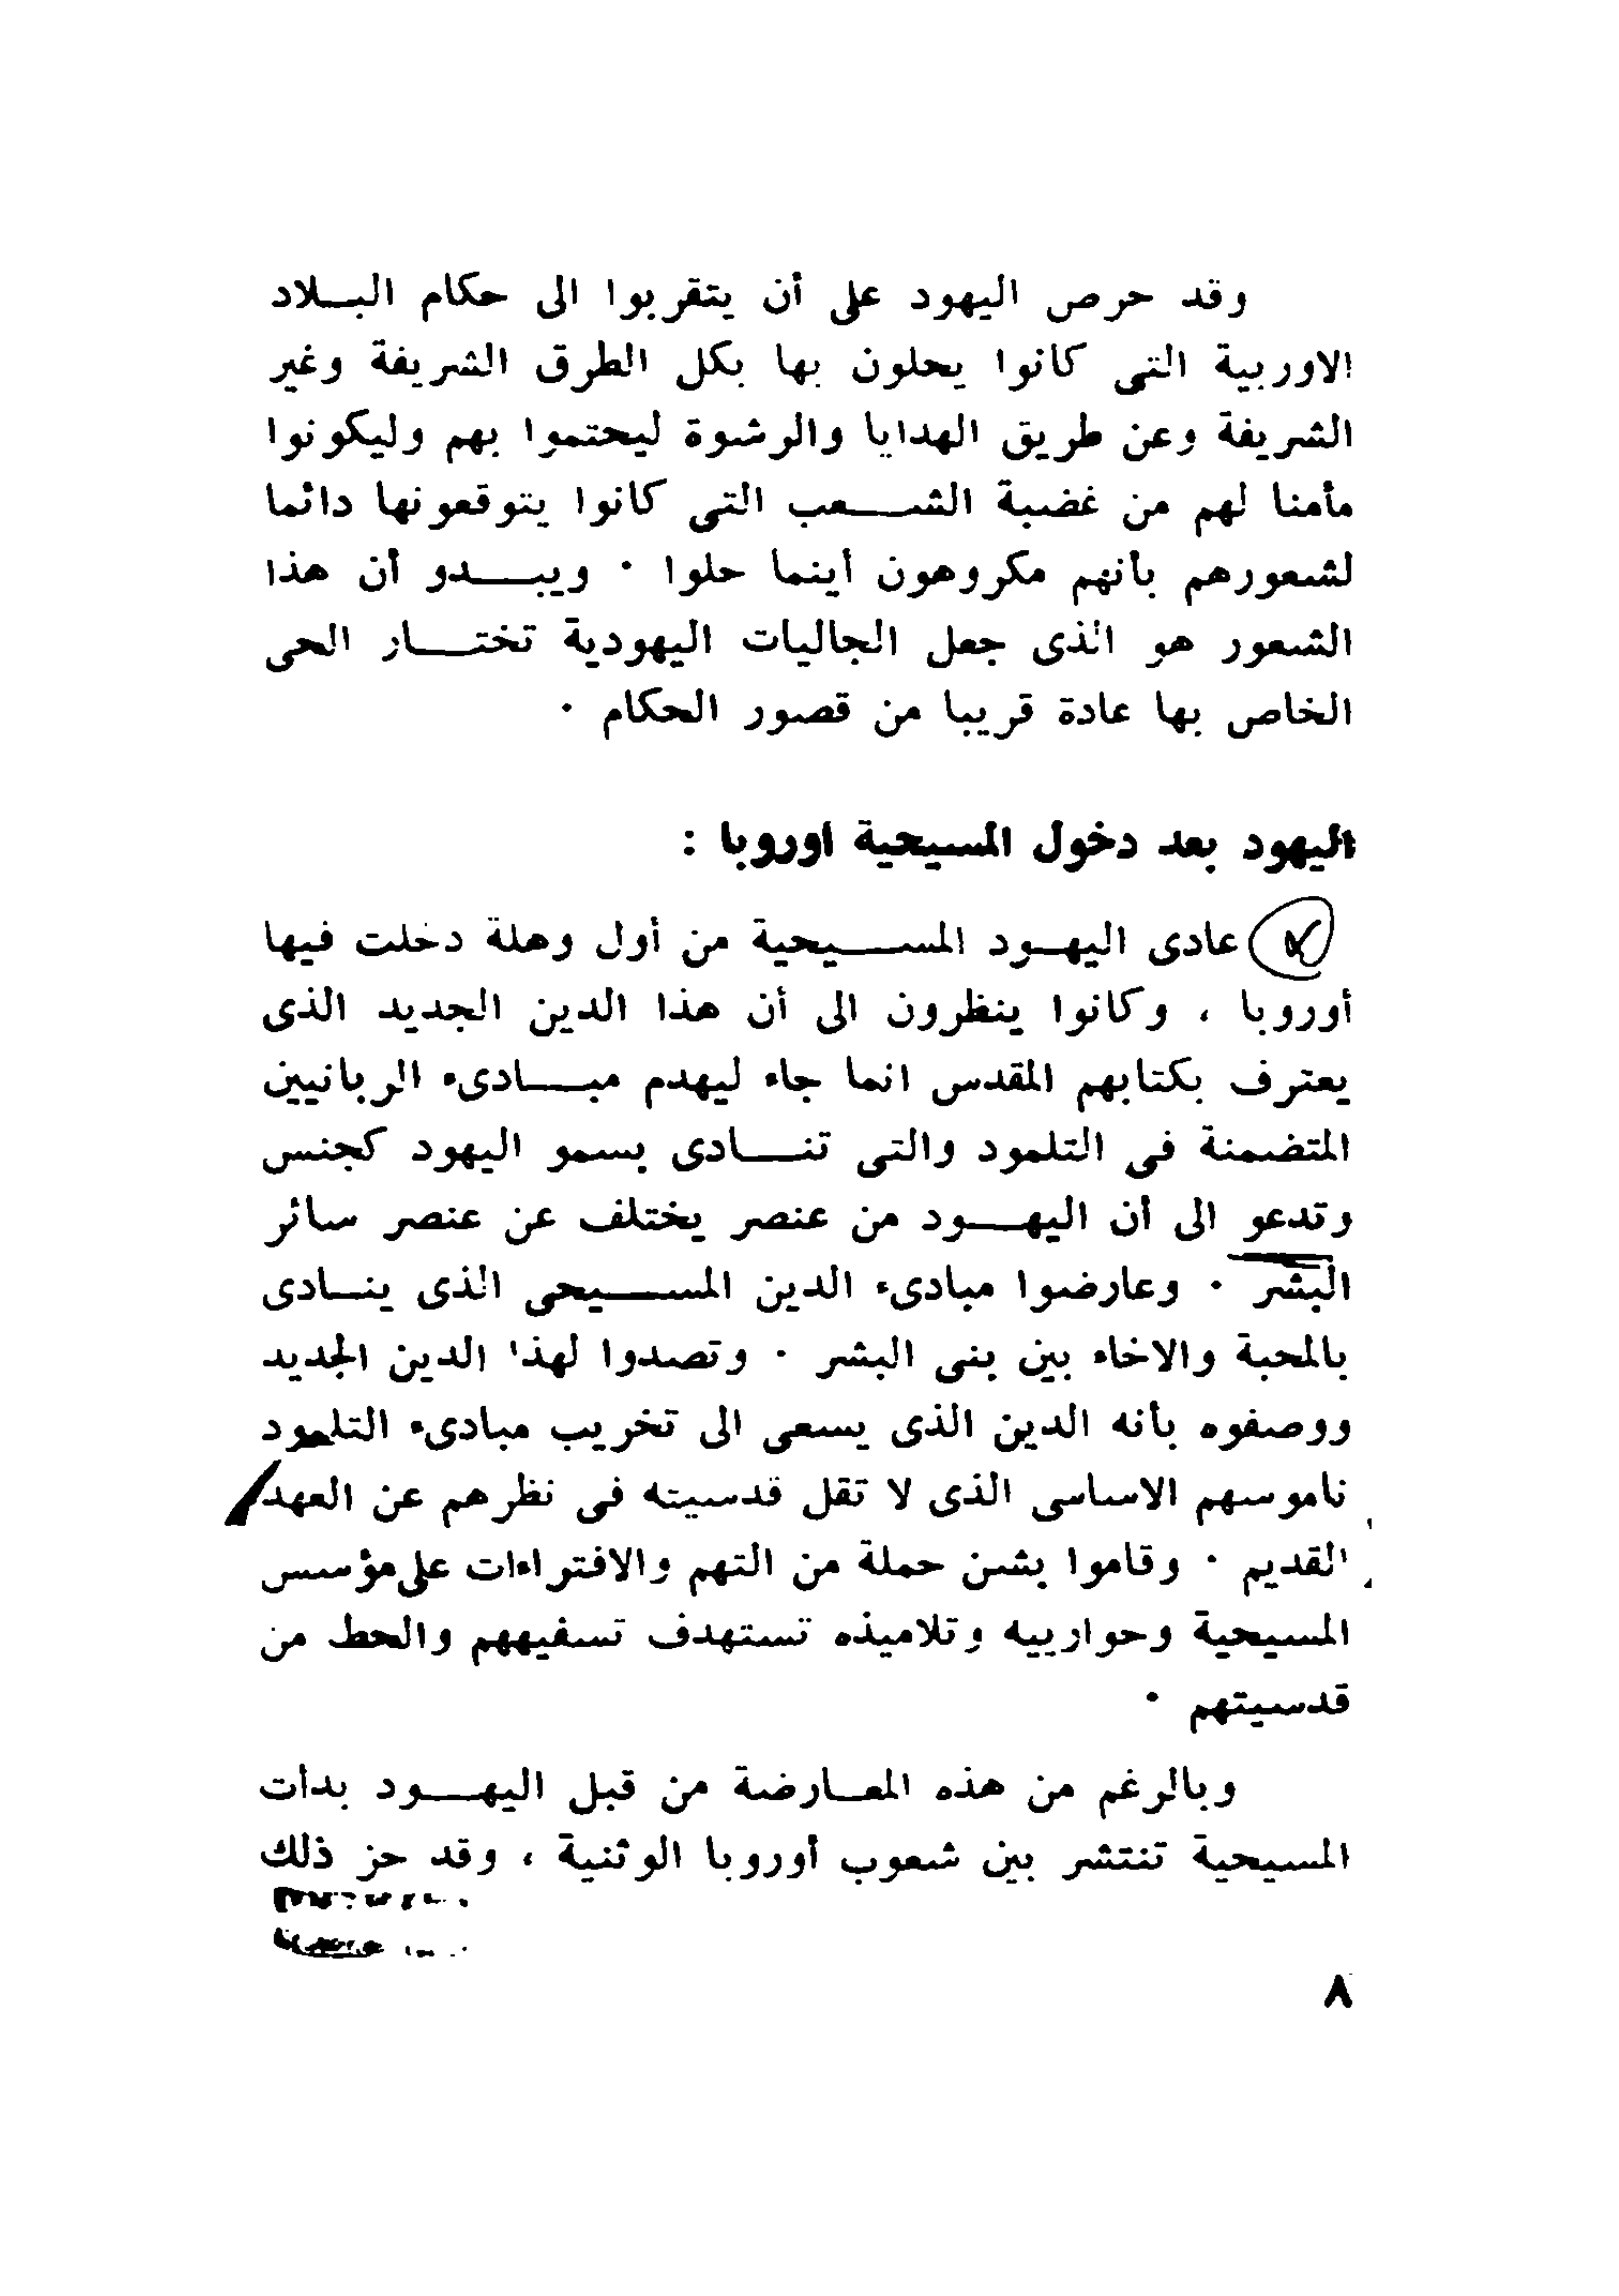 وقد حرص اليهود على أن يتقربوا الى حكام البلاد
الاوربية التى كانوا يحلون بها بكل الطرق الشريفة وغير
الشريفة وعن طريق الهدايا والرشوة ليحتموا بهم وليكونوا
مأمنا لهم من غضبة الشعب التى كانوا يتوقعونها دائما
لشعورهم بأنهم مكروهون أينما حلوا . ويبدو أن هذا
الشعور هو الذى جعل الجاليات اليهودية تختار الحى
الخاص بها عادة قريبا من قصور الحكام .
اليهود بعد دخول المسيحية اوروبا :
عادى اليهود المسيحية من أول وهلة دخلت فيها
أوروبا ، وكانوا ينظرون الى أن هذا الدين الجديد الذى
يعترف بكتابهم المقدس انما جاء ليهدم مبادىء الربانيين
المتضمنة فى التلمود والتى تنادى بسمو اليهود كجنس
وتدعو الى أن اليهود من عنصر يختلف عن عنصر سائر
البشر . وعارضوا مبادىء الدين المسيحى الذى ينادى
بالمحبة والاخاء بين بنى البشر . وتصدوا لهذا الدين الجديد
ووصفوه بأنه الدين الذى يسعى الى تخريب مبادىء التلمود
ناموسهم الاساسى الذى لا تقل قدسيته فى نظرهم عن العهد
القديم . وقاموا بشن حملة من التهم والافتراءات على مؤسس
المسيحية وحوارييه وتلاميذه تستهدف تسفيههم والحط من
قدسيتهم .
وبالرغم من هذه المعارضة من قبل اليهود بدأت
المسيحية تنتشر بين شعوب أوروبا الوثنية ، وقد حز ذلك
٨